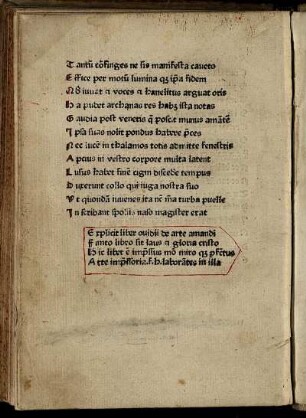 Tantū cōfinges ne sis manifesta caueto
Effice per motū lumina qʒ ip̄a fidem
iuuat ⁊ voces ⁊ hanelitus arguat oris
A pudet archanas res habʒ ista notas
Gaudia post veneris q̄ poscat munus amātē
Ip̄a suas nolit pondus habere p̄ces
Nec lucē in thalamos totis admitte fenestris
Apcius in vestro corpore multa latent
Lusus habet finē cigni discede tempus
Duxerunt collo qui iuga nostra suo
Vt quondā iuuenes ita nē mea turba puelle
Inscribant spoliis naso magister erat
Explicit liber ouidii de arte amandi
Finito libro sit laus ⁊ gloria cristo
Hic liber ē imp̄ssus mō miro qʒ p̄fectus
Arte imp̄ssoria laborātes in illa